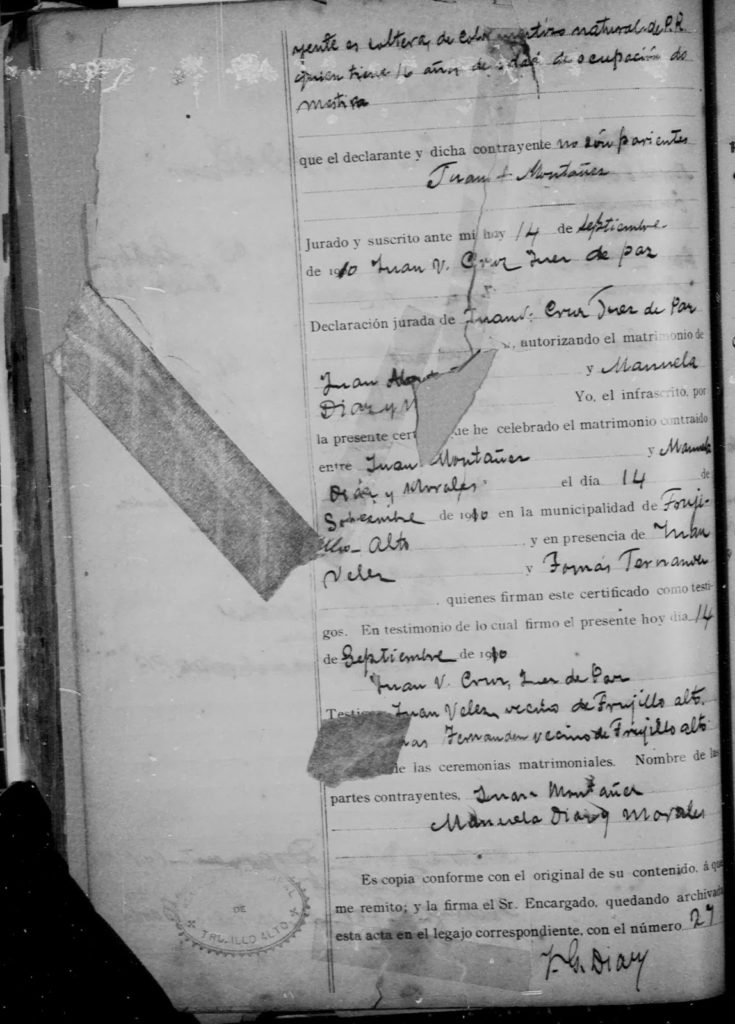 yente es soltera, de color mestizo natural de P.R.
quien tiene 16 años de edad de ocupación do
mestica
que el declarante y dicha contrayente no són parientes
Juan + Montañez
Jurado y suscrito ante mi hoy 14 de Septiembre
de 1910 Juan V. Cruz Juez de paz
Declaración jurada de Juan V. Cruz Juez de Paz
, autorizando el matrimonio de
Juan y Manuela
Diaz y Yo, el infrascrito, por
la presente cert que he celebrado el matrimonio contraido
entre Juan Montañez y Manuela
Diaz y Morales el día 14 de
de 1910 en la municipalidad de Truji-
llo-Alto y en presencia de Juan
Velez y Tomás Fernandez
, quienes firman este certificado como testi-
gos. En testimonio de lo cual firmo el presente hoy dia 14
de Septiembre de 1910
Juan V. Cruz, Juez de Paz
Testigos Juan Velez, vecino de Trujillo alto.
mas Fernandez vecino de Trujillo alto
de las ceremonias matrimoniales. Nombre de las
partes contrayentes, Juan Montañez
Manuela Diaz y Morales
Es copia conforme con el original de su contenido, á que
me remito; y la firma el Sr. Encargado, quedando archivada
esta acta en el legajo correspondiente, con el número 27
DE
TRUJILLO ALTO
J. G. Diaz